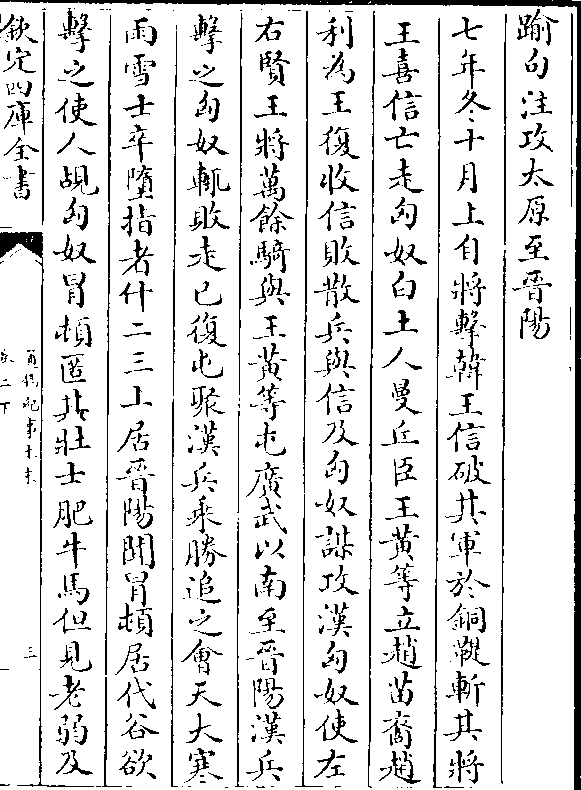 踰句注攻太原至晉陽
七年冬十月上自將擊韓王信破其軍於銅鞮斬其將
王喜信亡走匈奴白土人曼丘臣王黃等立趙苗裔趙
利為王復收信敗散兵與信及匈奴謀攻漢匈奴使左
右賢王將萬餘騎與王黃等屯廣武以南至晉陽漢兵
擊之匈奴輒敗走已復屯聚漢兵乘勝追之會天大寒
雨雪士卒墮指者什二三上居晉陽聞冒頓居代谷欲
擊之使人覘匈奴冒頓匿其壯士肥牛馬但見老弱及
欽定四庫全書
通鑑紀事本末
卷二下
三